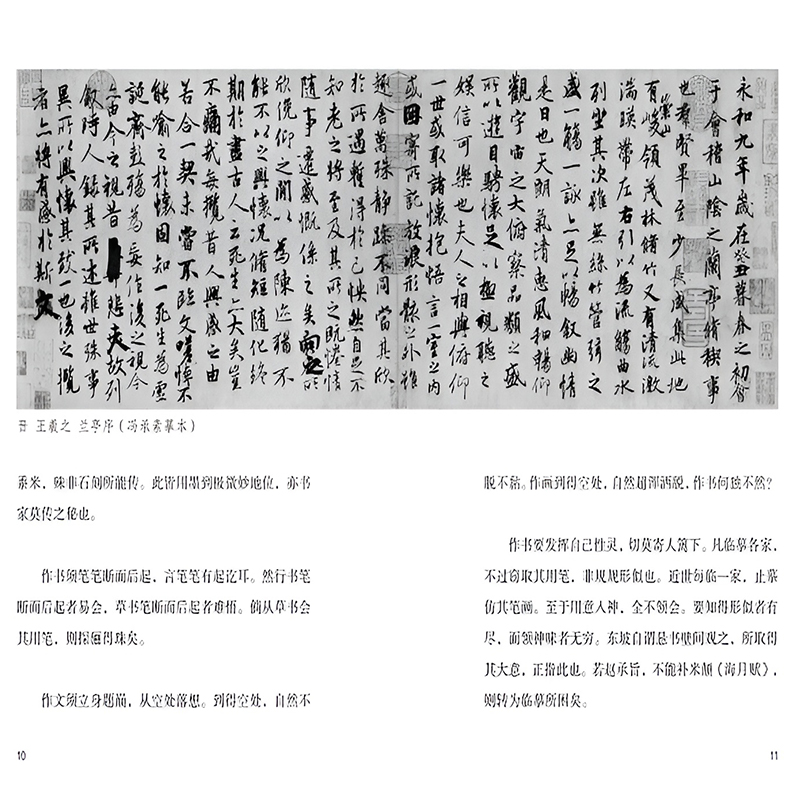 永和九年歲在癸丑暮春之初會
于會稽山陰之蘭亭脩稧事
也羣賢畢至少長咸集此地
有崇山峻領茂林脩竹又有清流激
湍暎帶左右引以為流觴曲水
列坐其次雖無絲竹管弦之
盛一觴一詠亦足以暢敘幽情
是日也天朗氣清惠風和暢仰
觀宇宙之大俯察品類之盛
所以遊目騁懷足以極視聽之
娛信可樂也夫人之相與俯仰
一世或取諸懷抱悟言一室之內
或因寄所託放浪形骸之外雖
趣舍萬殊靜躁不同當其欣
於所遇暫得於己怏然自足不
知老之將至及其所之既惓情
隨事遷感慨係之矣向之所
欣俛仰之閒以為陳迹猶不
能不以之興懷況脩短隨化終
期於盡古人云死生亦大矣豈
不痛哉每攬昔人興感之由
若合一契未嘗不臨文嗟悼不
能喻之於懷固知一死生為虛
誕齊彭殤為妄作後之視今
亦由今之視昔悲夫故列
敘時人錄其所述雖世殊事
異所以興懷其致一也後之攬
者亦將有感於斯文
晋 王羲之 兰亭序（冯承素摹本）
黍米，殊非石刻所能传。此皆用墨到极微妙地位，亦书
家莫传之秘也。
作书须笔笔断而后起，言笔笔有起讫耳。然行书笔
断而后起者易会，草书笔断而后起者难悟。倘从草书会
其用笔，则探骊得珠矣。
作文须立身题巅，从空处落想。到得空处，自然不
10
脱不黏。作画到得空处，自然超脱洒脱，作书何独不然？
作书要发挥自己性灵，切莫寄人篱下。凡临摹各家，
不过窃取其用笔，非规规形似也。近世每临一家，止摹
仿其笔画。至于用意入神，全不领会。要知得形似者有
尽，而领神味者无穷。东坡自谓悬书壁间观之，所取得
其大意，正指此也。若赵承旨，不能补米颠《海月赋》，
则转为临摹所困矣。
11